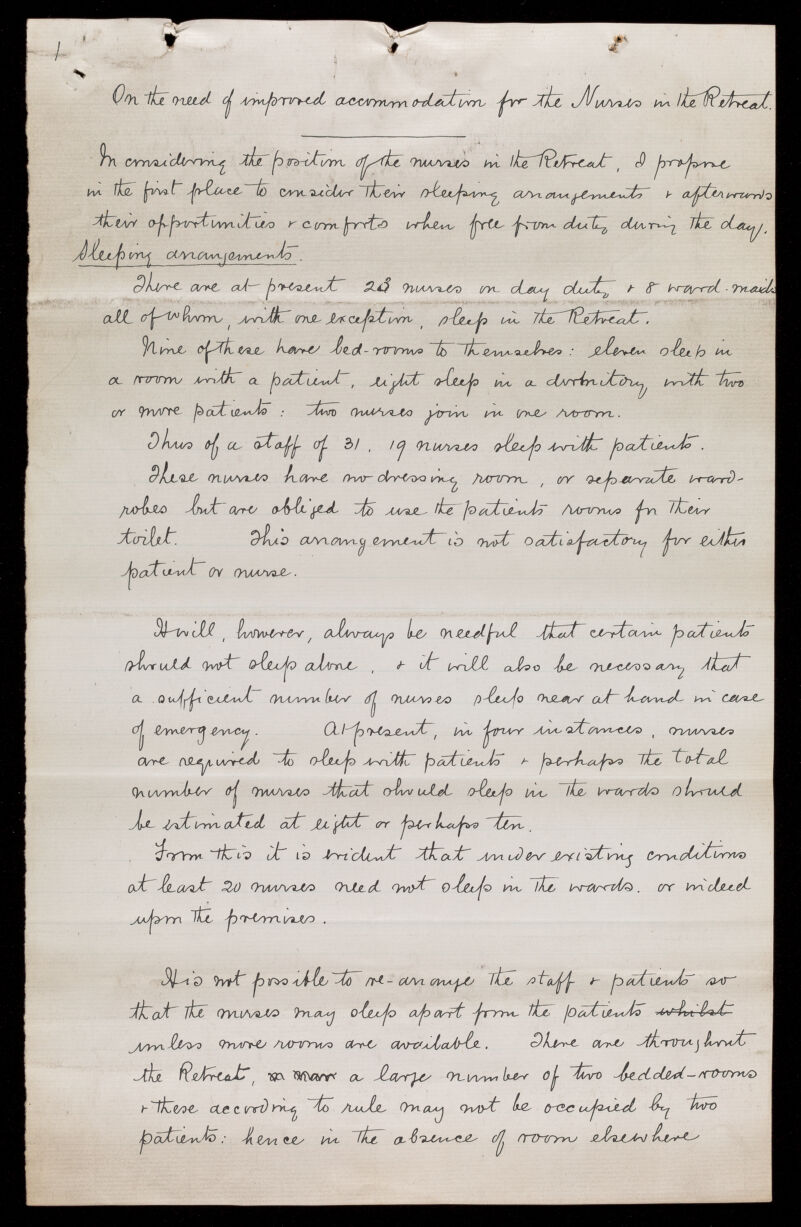 1
On the need of improved accommodation for the Nurses in the Retreat.
In considering the position of the nurses in the Retreat, I propose
in the first place to consider their sleeping arrangements & afterwards
their opportunities & comforts when free from duty during the day.
Sleeping arrangements.
There are at present 23 nurses on day duty & 8 ward-maids
all of whom, with one exception, sleep in the Retreat.
Nine of these have bed-rooms to themselves: eleven sleep in
a room with a patient, eight sleep in a dormitory with two
or more patients: two nurses join in one room.
Thus of a staff of 31, 19 nurses sleep with patients.
These nurses have no dressing room, or separate ward-
robes but are obliged to use the patients rooms for their
toilet. This arrangement is not satisfactory for either
patient or nurse.
It will, however, always be needful that certain patients
should not sleep alone, & it will also be necessary that
a sufficient number of nurses sleep near at hand in case
of emergency. At present, in four instances, nurses
are required to sleep with patients & perhaps the total
number of nurses that should sleep in the wards should
be estimated at eight or perhaps ten.
From this it is evident that under existing conditions
at least 20 nurses need not sleep in the wards. or indeed
upon the premises.
It is not possible to re-arrange the staff & patients so
that the nurses may sleep apart from the patients whilst
unless more rooms are available. There are throughout
the Retreat, a large number of two bedded-rooms
& these according to rule may not be occupied by two
patients: hence in the absence of room elsewhere